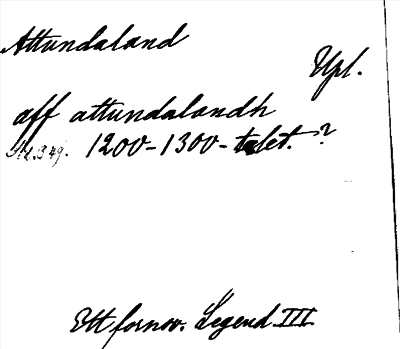 Attundaland
Upl.
aff attundalandh
s. 349. 1200-1300-talet. ?
Ett fornsv. Legend. III